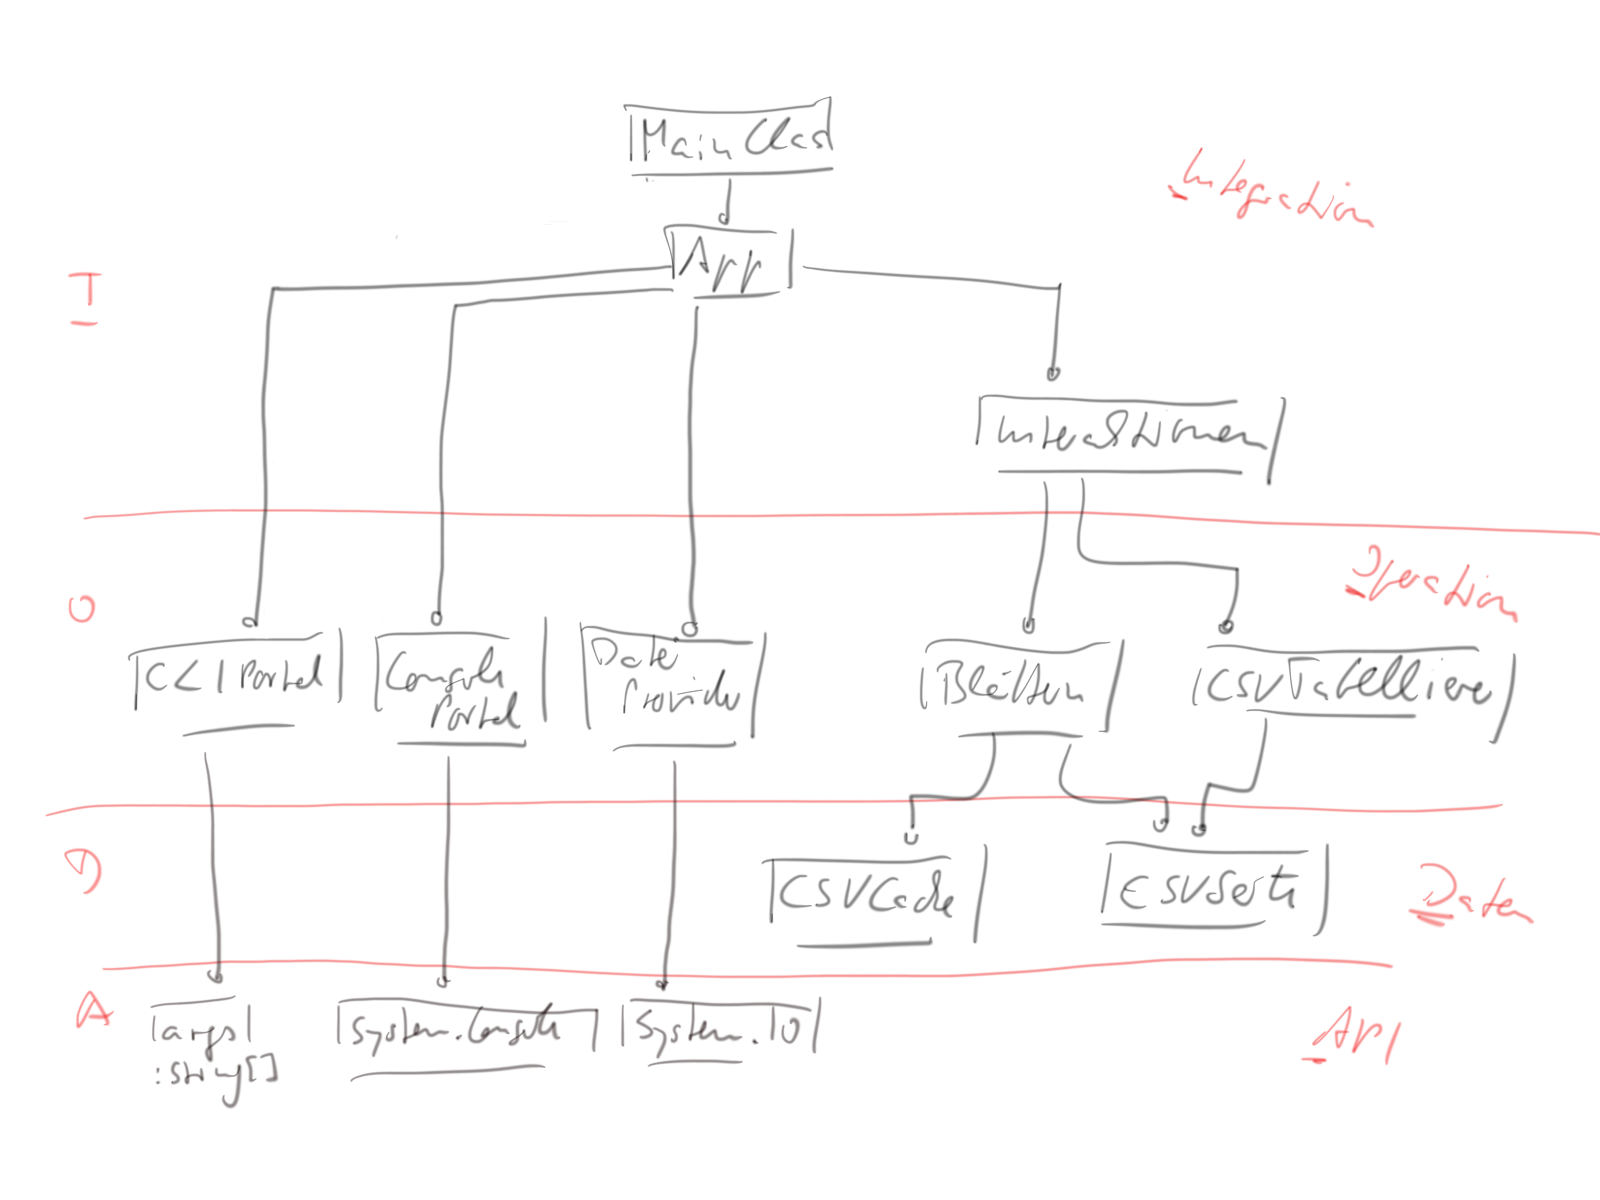 Main Class
Integration
App
I
Interaktionen
Operation
O
CLI Portal
Console
Portal
Data
Provider
Blättern
CSVTabellieren
D
CSVCache
CSVSeite
Daten
A
args
:string[]
System.Console
System.IO
API